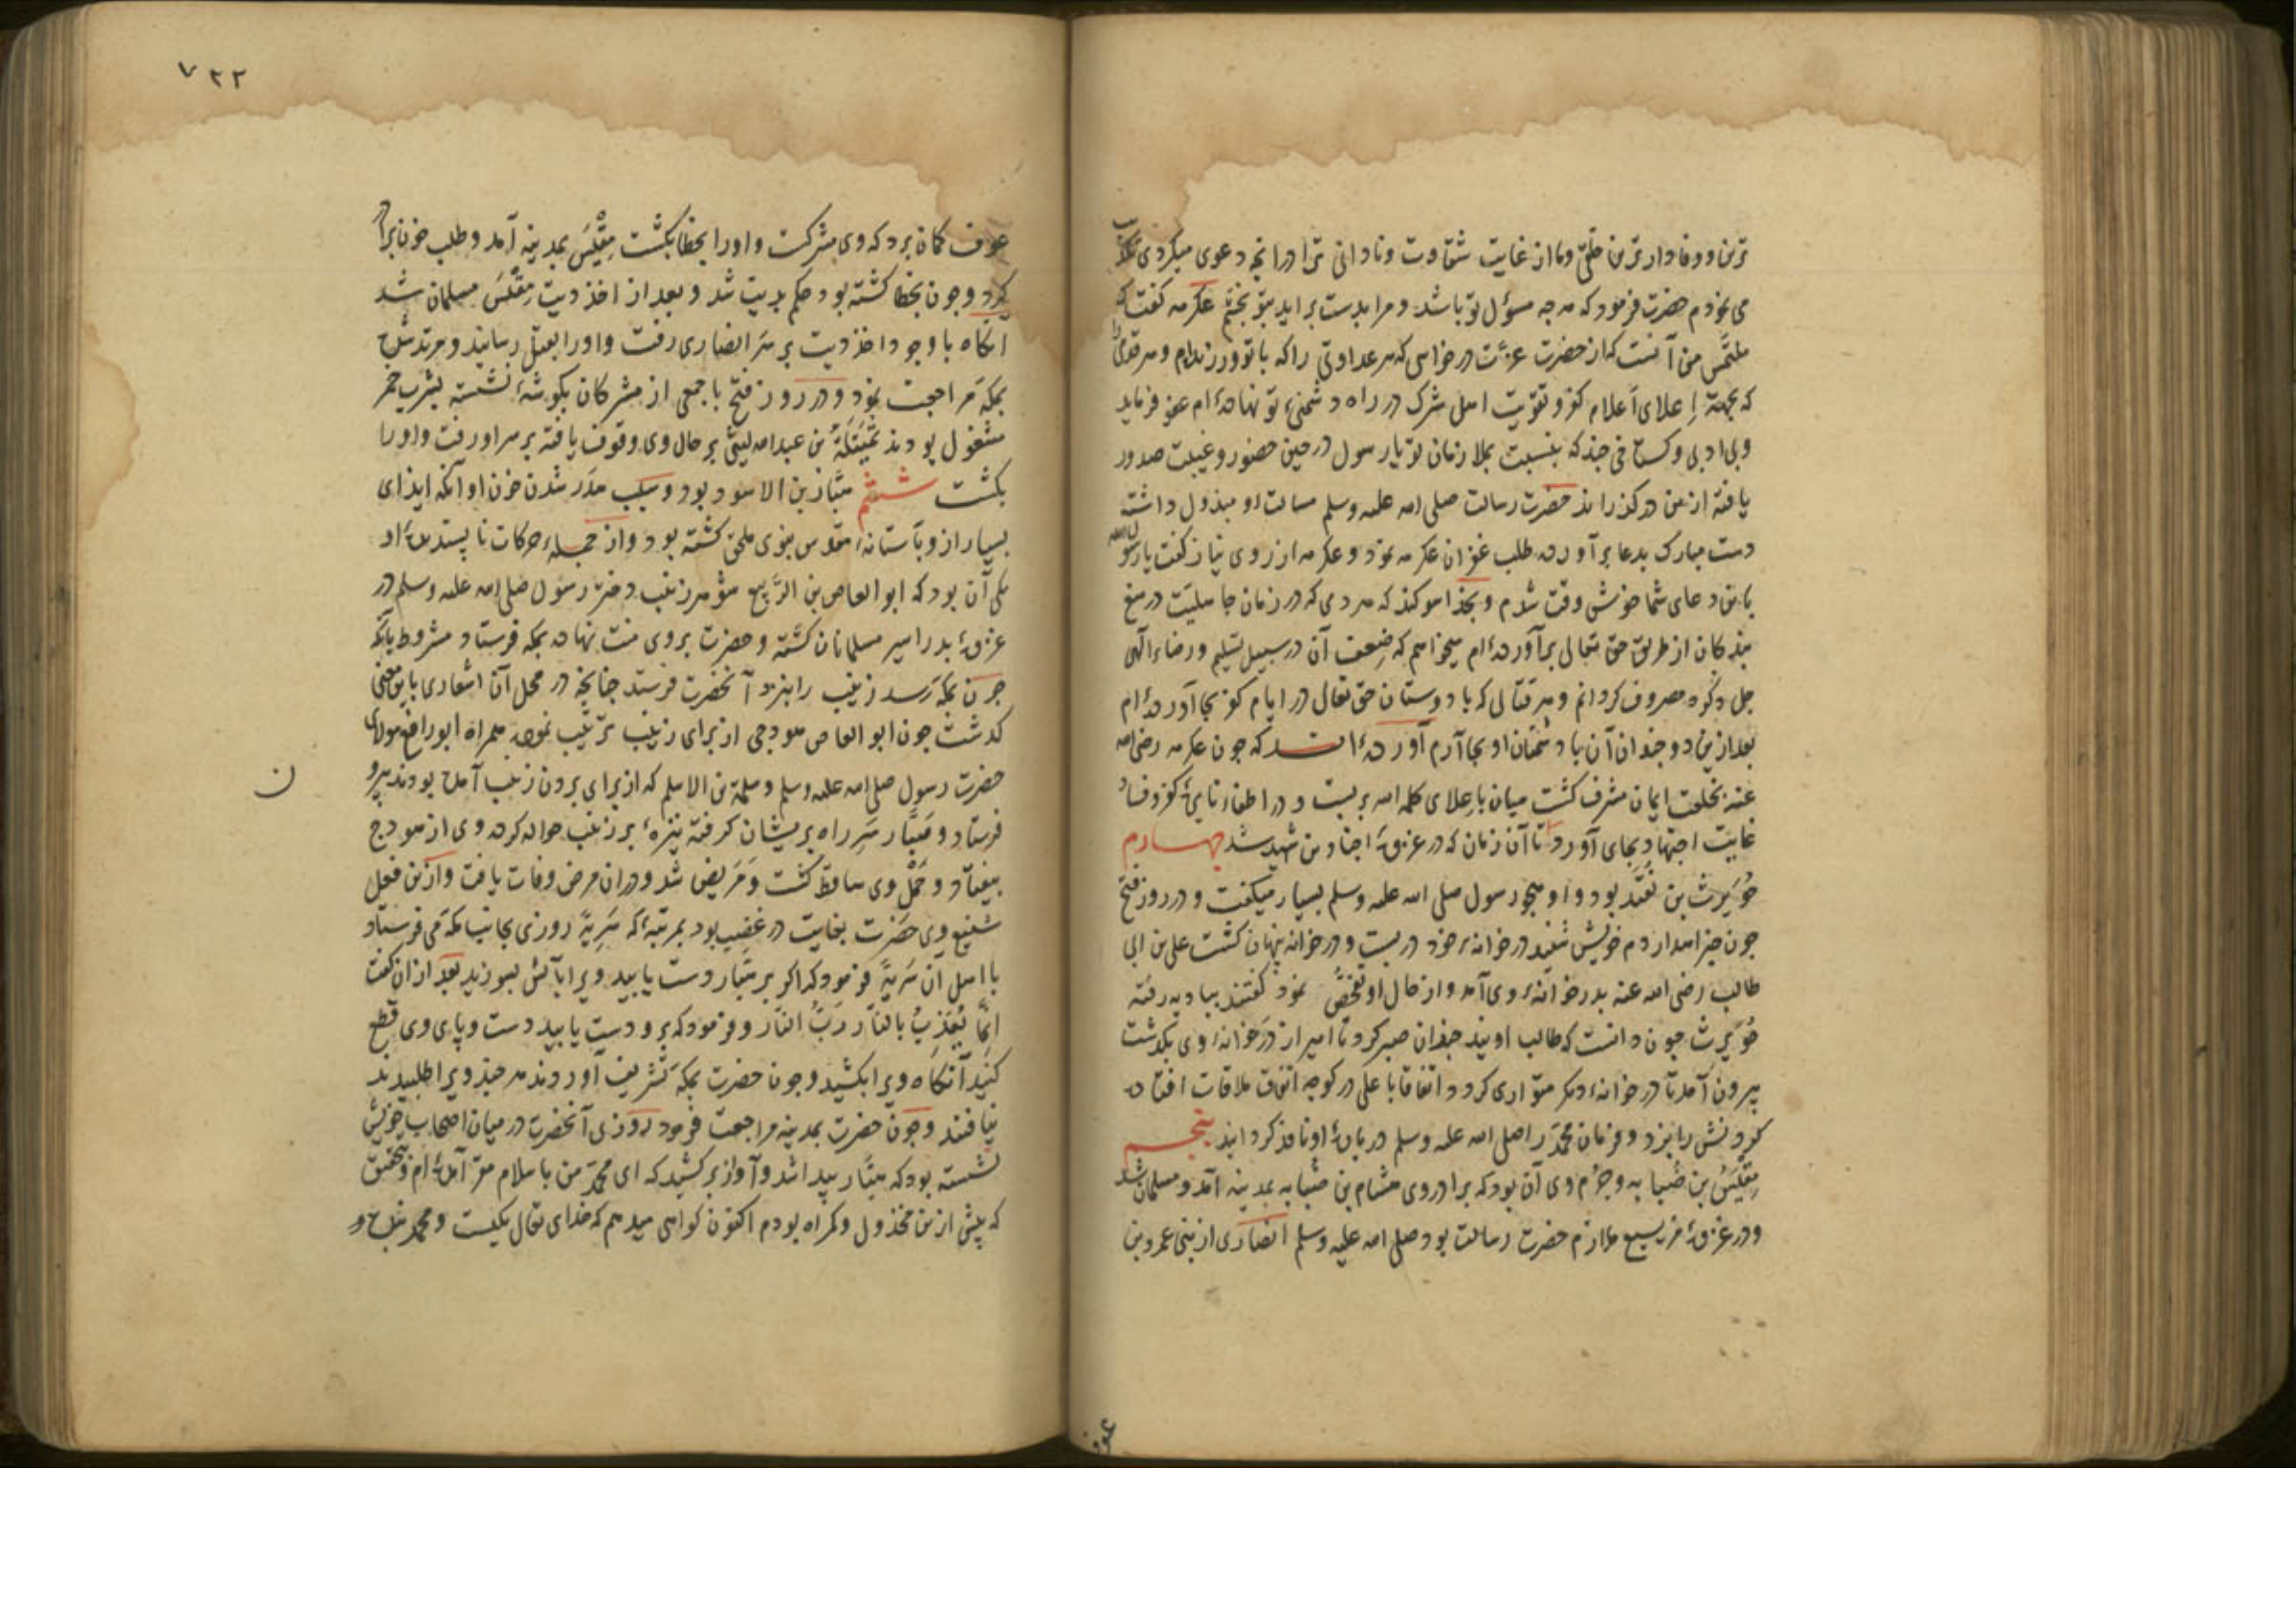 ترین و وفادار ترین خلقی و ما از غایت شقاوت و نادانی ترا در انچه دعوی میکردی تکذیب
می نمودم حضرت فرمود که هر چه مسؤل تو باشد و مرا بدست براید بتو بخشم عکرمه کفت که
ملتمس من آنست که از حضرت عزت درخواهی که هر عداوتی را که با تو ورزیدام و هر قدمی را
که بجهة اِعلای اَعلام کفر و تقویت اهل شرک در راه دشمنی تو نهاده‌ٔام عفو فرماید
و بی ادبی و کستاخی چند که بنسبت بملازمان تو یا رسول در حین حضور و غیبت صدور
یافته از من درکذراند حضرت رسالت صلی الله علیه وسلم مسالت او مبذول داشته
دست مبارک بدعا برآورده طلب غفران عکرمه نمود و عکرمه از روی نیاز کفت یا رسول الله
باین دعای شما خوش وقت شدم و بخدا سوکند که هر درمی که در زمان جاهلیت در منع
بندکان از طریق حق تعالی برآورده‌ٔام میخواهم که ضِعف آن در سبیل تسلیم و رضاء الهی
جل ذکره مصروف کردانم و هر قتالی که با دوستان حق تعالی در ایام کفر بجا آورده‌ٔام
بعد ازین دو چندان آن با دشمنان او بجا آرم آورده‌ٔ اند که چون عکرمه رضی الله
عنه بخلعت ایمان مشرف کشت میان باِعلای کلمه الله بربست و در اطفاء نایرهٔ کفر و فساد
غایت اجتهاد بجای آورد تا آن زمان که در غزوهٔ اجنادین شهید شد چهارم
حُوَیرث بن نُقَید بود و او هجو رسول صلی الله علیه وسلم بسیار میکفت و در روز فتح
چون خبر اهدار دم خویش شنید در خوانهٔ خود در ببست و در خوانه پنهان کشت علی بن ابی
طالب رضی الله عنه بدر خوانهٔ وی آمد و از حال او تفحّص نمود کفتند ببادیه رفته
حُوَیرث چون دانست که طالب اویند چندان صبر کرد تا امیر از در خوانهٔ وی بکذشت
بیرون آمد تا در خوانهٔ دیکر متواری کردد اتفاقا با علی در کوچه اتفاق ملاقات افتاده
کردنش را بزد و فرمان محمد را صلی الله علیه وسلم در بارهٔ او نافذ کردانید پنجم
مِقْیَس بن ضُبابه و جُرم وی آن بود که برادر وی هشام بن ضبابه بمدینه آمد و مسلمان شد
و در غزوهٔ مریسیع ملازم حضرت رسالت بود صلی الله علیه وسلم انصاری از بنی عمرو بن
عوف
۷۲۲
عوف کمان برد که وی مشرکست و اورا بخطا بکشت مِقْیَس بمدینه آمد و طلب خون برادر
کرد و چون بخطا کشته بود حکم بدیت شد و بعد از اخذ دیت مِقْیَس مسلمان شد
انکاه با وجود اخذ دیت بر سَر انصاری رفت و اورا بقتل رسانید و مرتد شده
بمکه مَراجعت نمود و در روز فتح با جمعی از مشرکان بکوشهٔ نشسته بشرب خمر
مشغول بودند نُمَیلَةُ بن عبد الله لیثی بر حال وی وقوف یافته بر سر او رفت و اورا
بکشت ششم هبّار بن الاسود بود و سبب هدَر شدن خون او آنکه ایذای
بسیار از و بآستانهٔ مقدس نبوی ملحق کشته بود و از جمله‌ٔ حرکات ناپسندیدهٔ او
یکی آن بود که ابو العاص بن الرَّبیع شوهر زینب دختر رسول صلی الله علیه وسلم در
غزوهٔ بدر اسیر مسلمانان کَشته و حضرت بر وی منت نهاده بمکه فرستاد مشروط بآنکه
چون بمکه رسد زینب را بنزد آنحضرت فرستد چنانچه در محل آن اشعاری باین معنی
کذشت چون ابو العاص هودجی از برای زینب ترتیب نموده همراه ابو رافع مولای
حضرت رسول صلی الله علیه وسلم و سلمة بن الاسلم که از برای بردن زینب آمده بودند بیرون
ن
فرستاد و هَبّار سَرِ راه بریشان کرفته نیزهٔ بر زینب حواله کرده وی از هودج
بیفتاد و حَمْل وی ساقط کشت و مَرَیض شد و دران مرض وفات یافت و ازین فعل
شنیع وی حضَرت بغایت در غضب بود بمرتبهٔ که سَرِیَّهٔ روزی بجانب مکه می فرستاد
با اهل آن سَرِیَّهٔ فرمود که اکر بر هَبّار دست یابید ویرا بآتش بسوزید بعد از ان کفت
اِنَّما یُعَذِّبُ بالنّار رَبُّ النّار و فرمود که برو دست یابید دست و پای وی قطع
کنید آنکاه ویرا بکشید و چون حضرت بمکه تَشریف آوردند هر چند ویرا طلبیدند
نیافتند و چون حضرت بمدینه مراجعت فرمود روزی آنحضرت در میان اصحاب خویش
نشسته بود که هبّار پیدا شد و آواز برکشید که ای محمّد من باسلام مقر آمدهٔ ام و بتحقیق
که پیش ازین مخذول و کمراه بودم اکنون کواهی میدهم که خدای تعالی یکیست و محمد بنده و